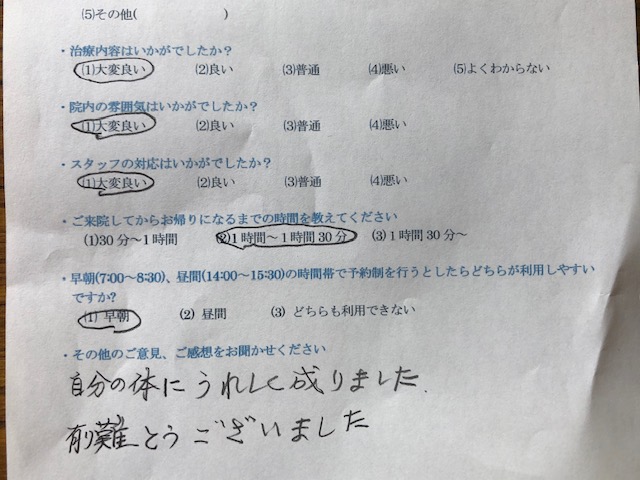 (5)その他(　　　　　　)
・治療内容はいかがでしたか?
(1)大変良い　(2)良い　(3)普通　(4)悪い　(5)よくわからない
・院内の雰囲気はいかがでしたか?
(1)大変良い　(2)良い　(3)普通　(4)悪い
・スタッフの対応はいかがでしたか?
(1)大変良い　(2)良い　(3)普通　(4)悪い
・ご来院してからお帰りになるまでの時間を教えてください
(1)30分～1時間　(2)1時間～1時間30分　(3)1時間30分～
・早朝(7:00～8:30)、昼間(14:00～15:30)の時間帯で予約制を行うとしたらどちらが利用しやすい
ですか?
(1) 早朝　(2) 昼間　(3) どちらも利用できない
・その他のご意見、ご感想をお聞かせください
自分の体にうれしく成りました.
有難とうございました